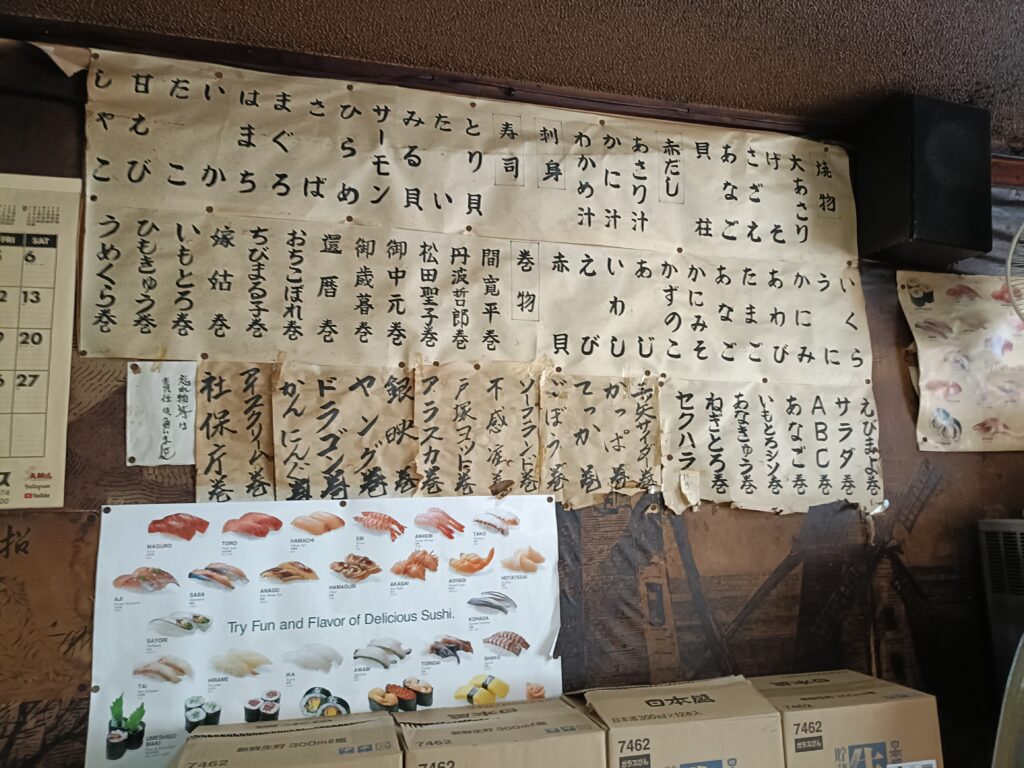 焼物
大あさり
げそ
さざえ
あなご
貝柱
赤だし
あさり汁
かに汁
わかめ汁
刺身
寿司
とり貝
たい
みる貝
サーモン
ひらめ
さば
まぐろ
はまち
いか
たこ
甘えび
しゃこ
いくら
うに
かにみ
あわび
たまご
あなご
かにみそ
かずのこ
あじ
いわし
えび
赤貝
巻物
間寛平巻
丹波哲郎巻
松田聖子巻
御中元巻
御歳暮巻
還暦巻
おちこぼれ巻
ちびまる子巻
嫁姑巻
いもとろ巻
ひもきゅう巻
うめくら巻
えびまよ巻
サラダ巻
ABC巻
あなご巻
いもとろシソ巻
あなきゅう巻
ねぎとろ巻
セクハラ
三矢サイダー巻
かっぱ巻
てっか巻
ごぼう巻
ソープランド巻
不感症巻
戸塚ヨット巻
アラスカ巻
銀映巻
ヤング巻
ドラゴン巻
かんにん巻
アイスクリーム巻
社保庁巻
忘れ物等は
FRI SAT
6
13
20
27
Instagram
YouTube
招
MAGURO
TORO
HAMACHI
EBI
AMAEBI
TAKO
AJI
SABA
ANAGO
HAMAGURI
AKAGAI
AOYAGI
HOTATEGAI
Try Fun and Flavor of Delicious Sushi.
SAYORI
KOHADA
TAI
HIRAME
IKA
AWABI
TORIGAI
SHAKO
UMESHISO
MAKI
日本盛
日本酒300ml×12本入
7462
ガラスびん
7462
ガラスびん
新鮮生貯 300ml壜
7462
7462